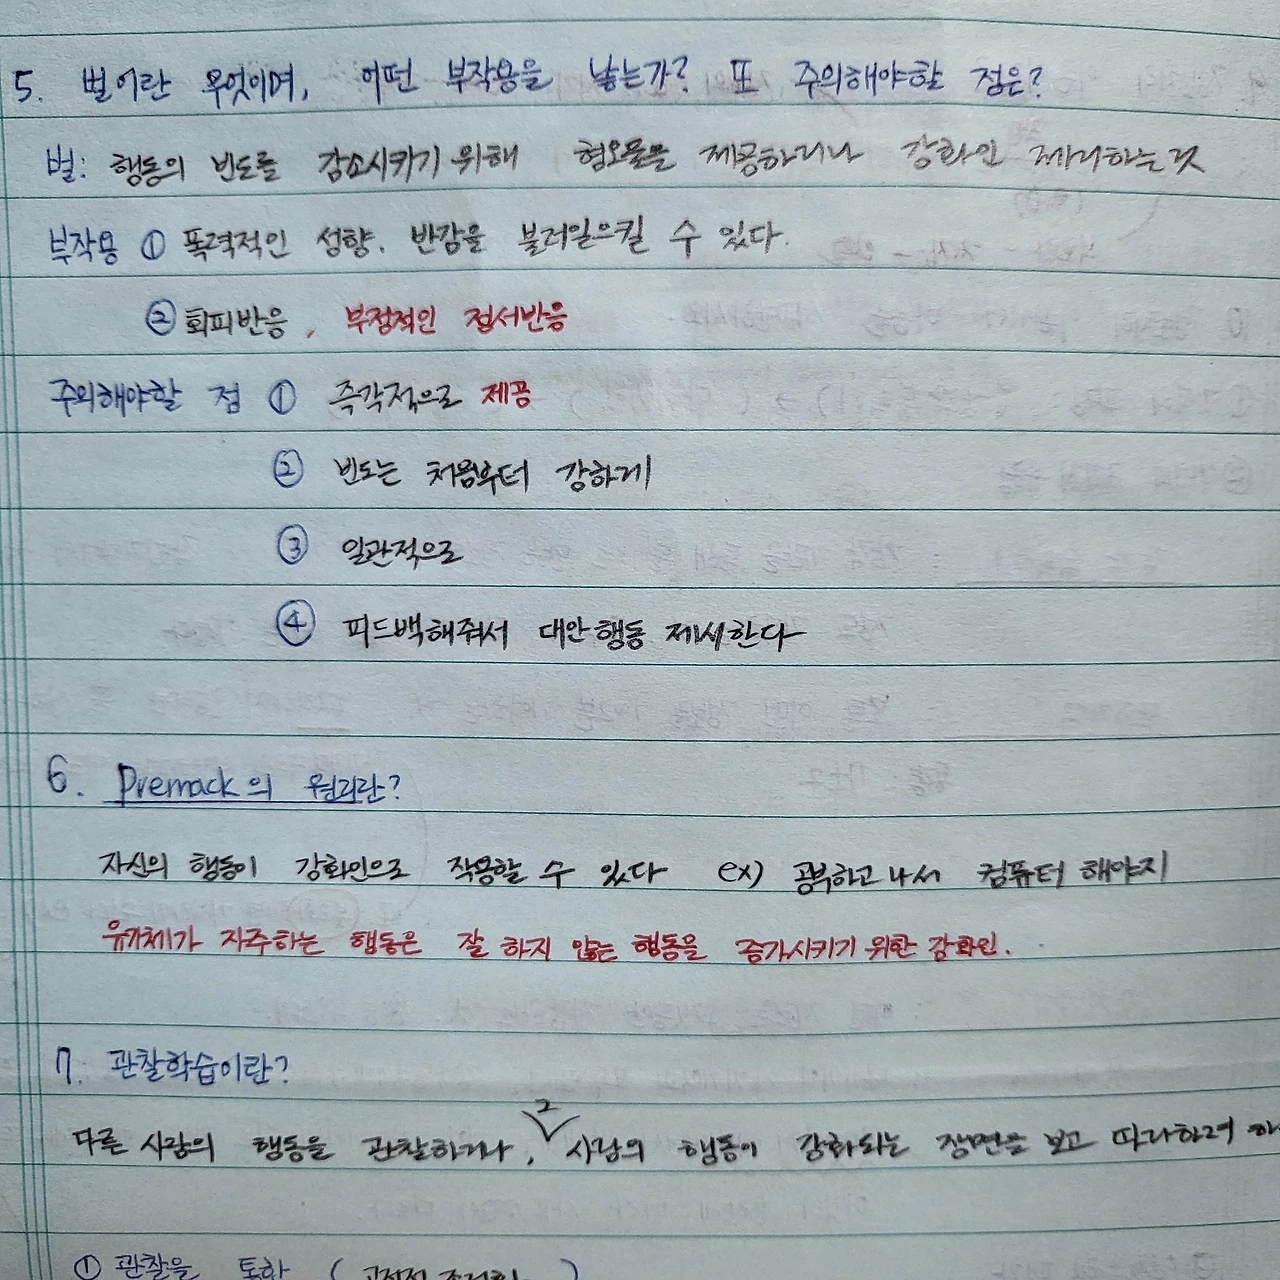 5. 벌이란 무엇이며, 어떤 부작용을 낳는가? 또 주의해야할 점은?
벌: 행동의 빈도를 감소시키기 위해 혐오물을 제공하거나 강화인 제거하는것
부작용 ① 폭력적인 성향, 반감을 불러일으킬 수 있다.
② 회피반응, 부정적인 정서반응
주의해야할 점 ① 즉각적으로 제공
② 빈도는 처음부터 강하게
③ 일관적으로
④ 피드백해줘서 대안행동 제시한다
6. Premack의 원리란?
자신의 행동이 강화인으로 작용할 수 있다 ex) 공부하고 나서 컴퓨터 해야지
유기체가 자주하는 행동은 잘 하지 않는 행동을 증가시키기 위한 강화인.
7. 관찰학습이란?
다른 사람의 행동을 관찰하거나, 그 사람의 행동이 강화되는 장면을 보고 따라하려 하
① 관찰을 통한 (고전적 조건화)